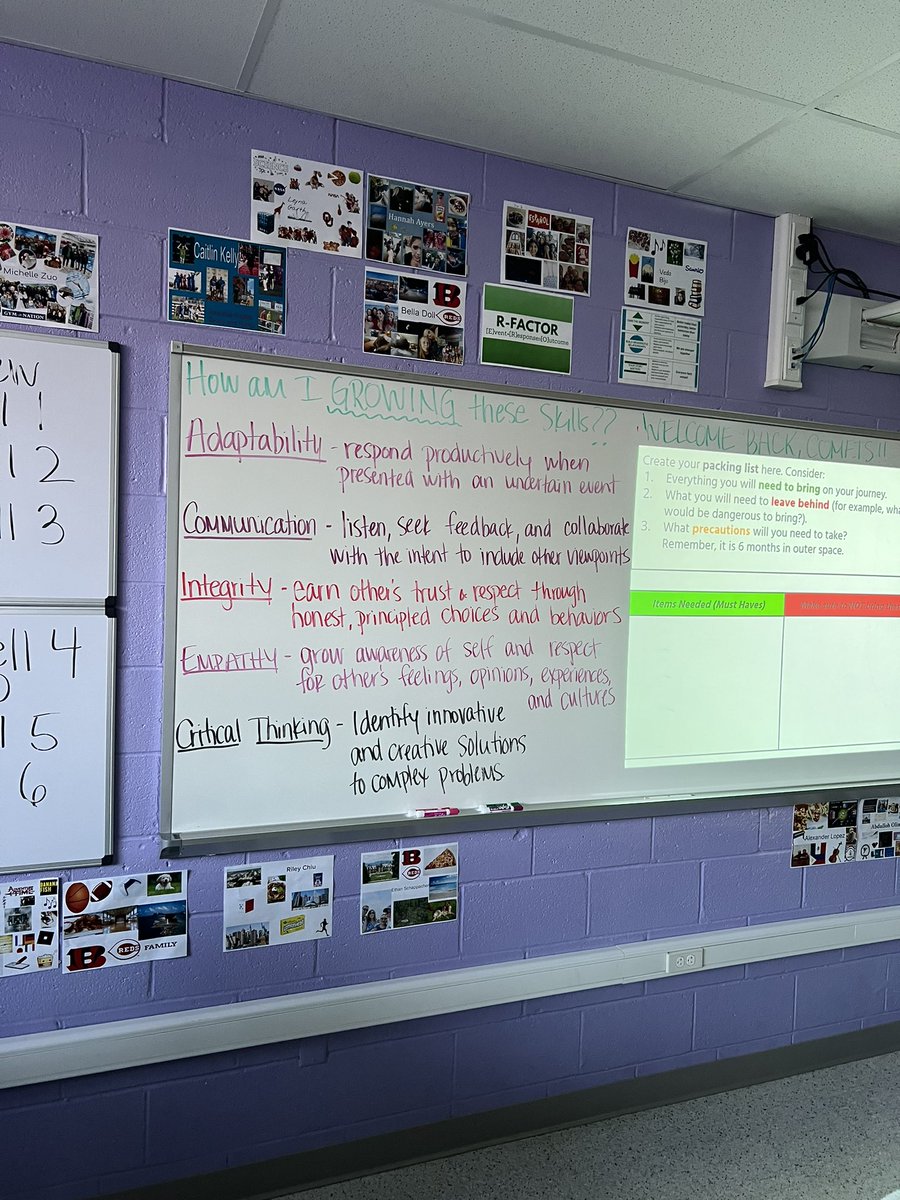 SCIENCE
NASA
Hannah Ayers
ESPAÑOL
Michelle Zuo
GYM NATION
Caitlin Kelly
Bella Doll
B
REDS
R-FACTOR
[E]vent+[R]esponse=[O]utcome
Veda
Biju
1
l 2
ll 3
ell 4
l 5
6
How am I GROWING these skills??
Adaptability - respond productively when
presented with an uncertain event
Communication - listen, seek feedback, and collaborate
with the intent to include other viewpoints
Integrity - earn other's trust & respect through
honest, principled choices and behaviors
EMPATHY - grow awareness of self and respect
for other's feelings, opinions, experiences,
and cultures
Critical Thinking - Identify innovative
and creative solutions
to complex problems.
WELCOME BACK, COMETS!!
Create your packing list here. Consider:
1. Everything you will need to bring on your journey.
2. What you will need to leave behind (for example, wha
would be dangerous to bring?).
3. What precautions will you need to take?
Remember, it is 6 months in outer space.
Items Needed (Must Haves)
Alexander Lopez
BANANA
FISH
B
REDS
FAMILY
Riley Chiu
B
REDS